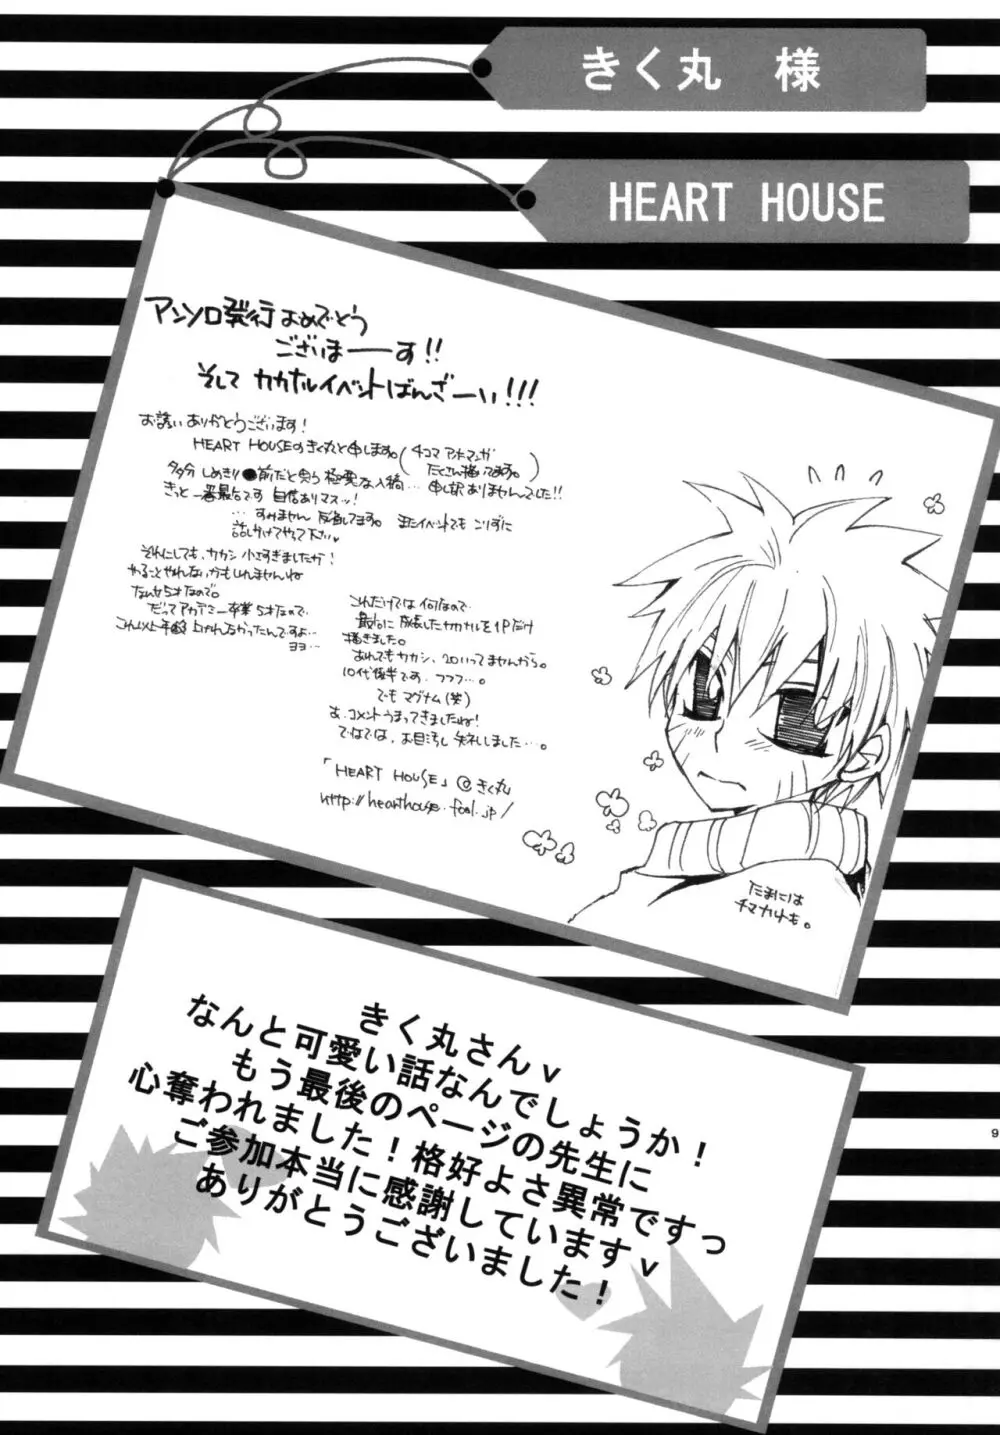 きく丸 様
HEART HOUSE
アンソロ発行おめでとう
ございまーーす!!
そして カカナルイベントばんざーい!!!
お誘いありがとうございます!
HEART HOUSEのきく丸と申します。(4コマ アホマンガ
たくさん描いてます。)
多分 しめきり●前だと思う 極悪な入稿… 申し訳ありませんでした!!
きっと一番最台です 自信ありマスッ!
…すみません 反省してます。またイベントでも こりずに
話しかけてやって下さい
それにしても、カカシ 小さすぎましたか!
やることやれないかもしれませんね
なんせ5才なので。
だってアカデミー卒業5才なので
これ以上年齢上げれんなかったんですよ…
ヨヨ…
これだけでは何なので
最後に 成長したカカナルを1Pだけ
描きました。
あれでもカカシ、20いってませんから。
10代後半です。フフフ…。
でも マグナム(笑)
あ、コメントうまってきましたね!
ではでは、お目汚し 失礼しました…。
「HEART HOUSE」@きく丸
http://hearthouse.fool.jp/
たまには
チマカナも。
きく丸さんv
なんと可愛い話なんでしょうか!
もう最後のページの先生に
心奪われました!格好よさ異常ですっ
ご参加本当に感謝していますv
ありがとうございました!
9